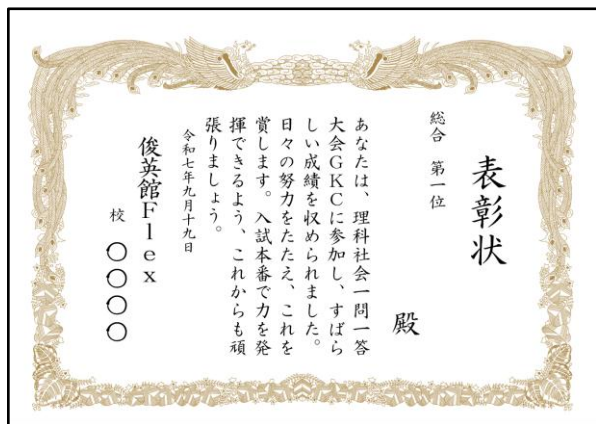 表彰状
総合 第一位
殿
あなたは、理科社会一問一答
大会GKCに参加し、すばら
しい成績を収められました。
日々の努力をたたえ、これを
賞します。入試本番で力を発
揮できるよう、これからも頑
張りましょう。
令和七年九月十九日
俊英館Flex
校 〇〇〇〇